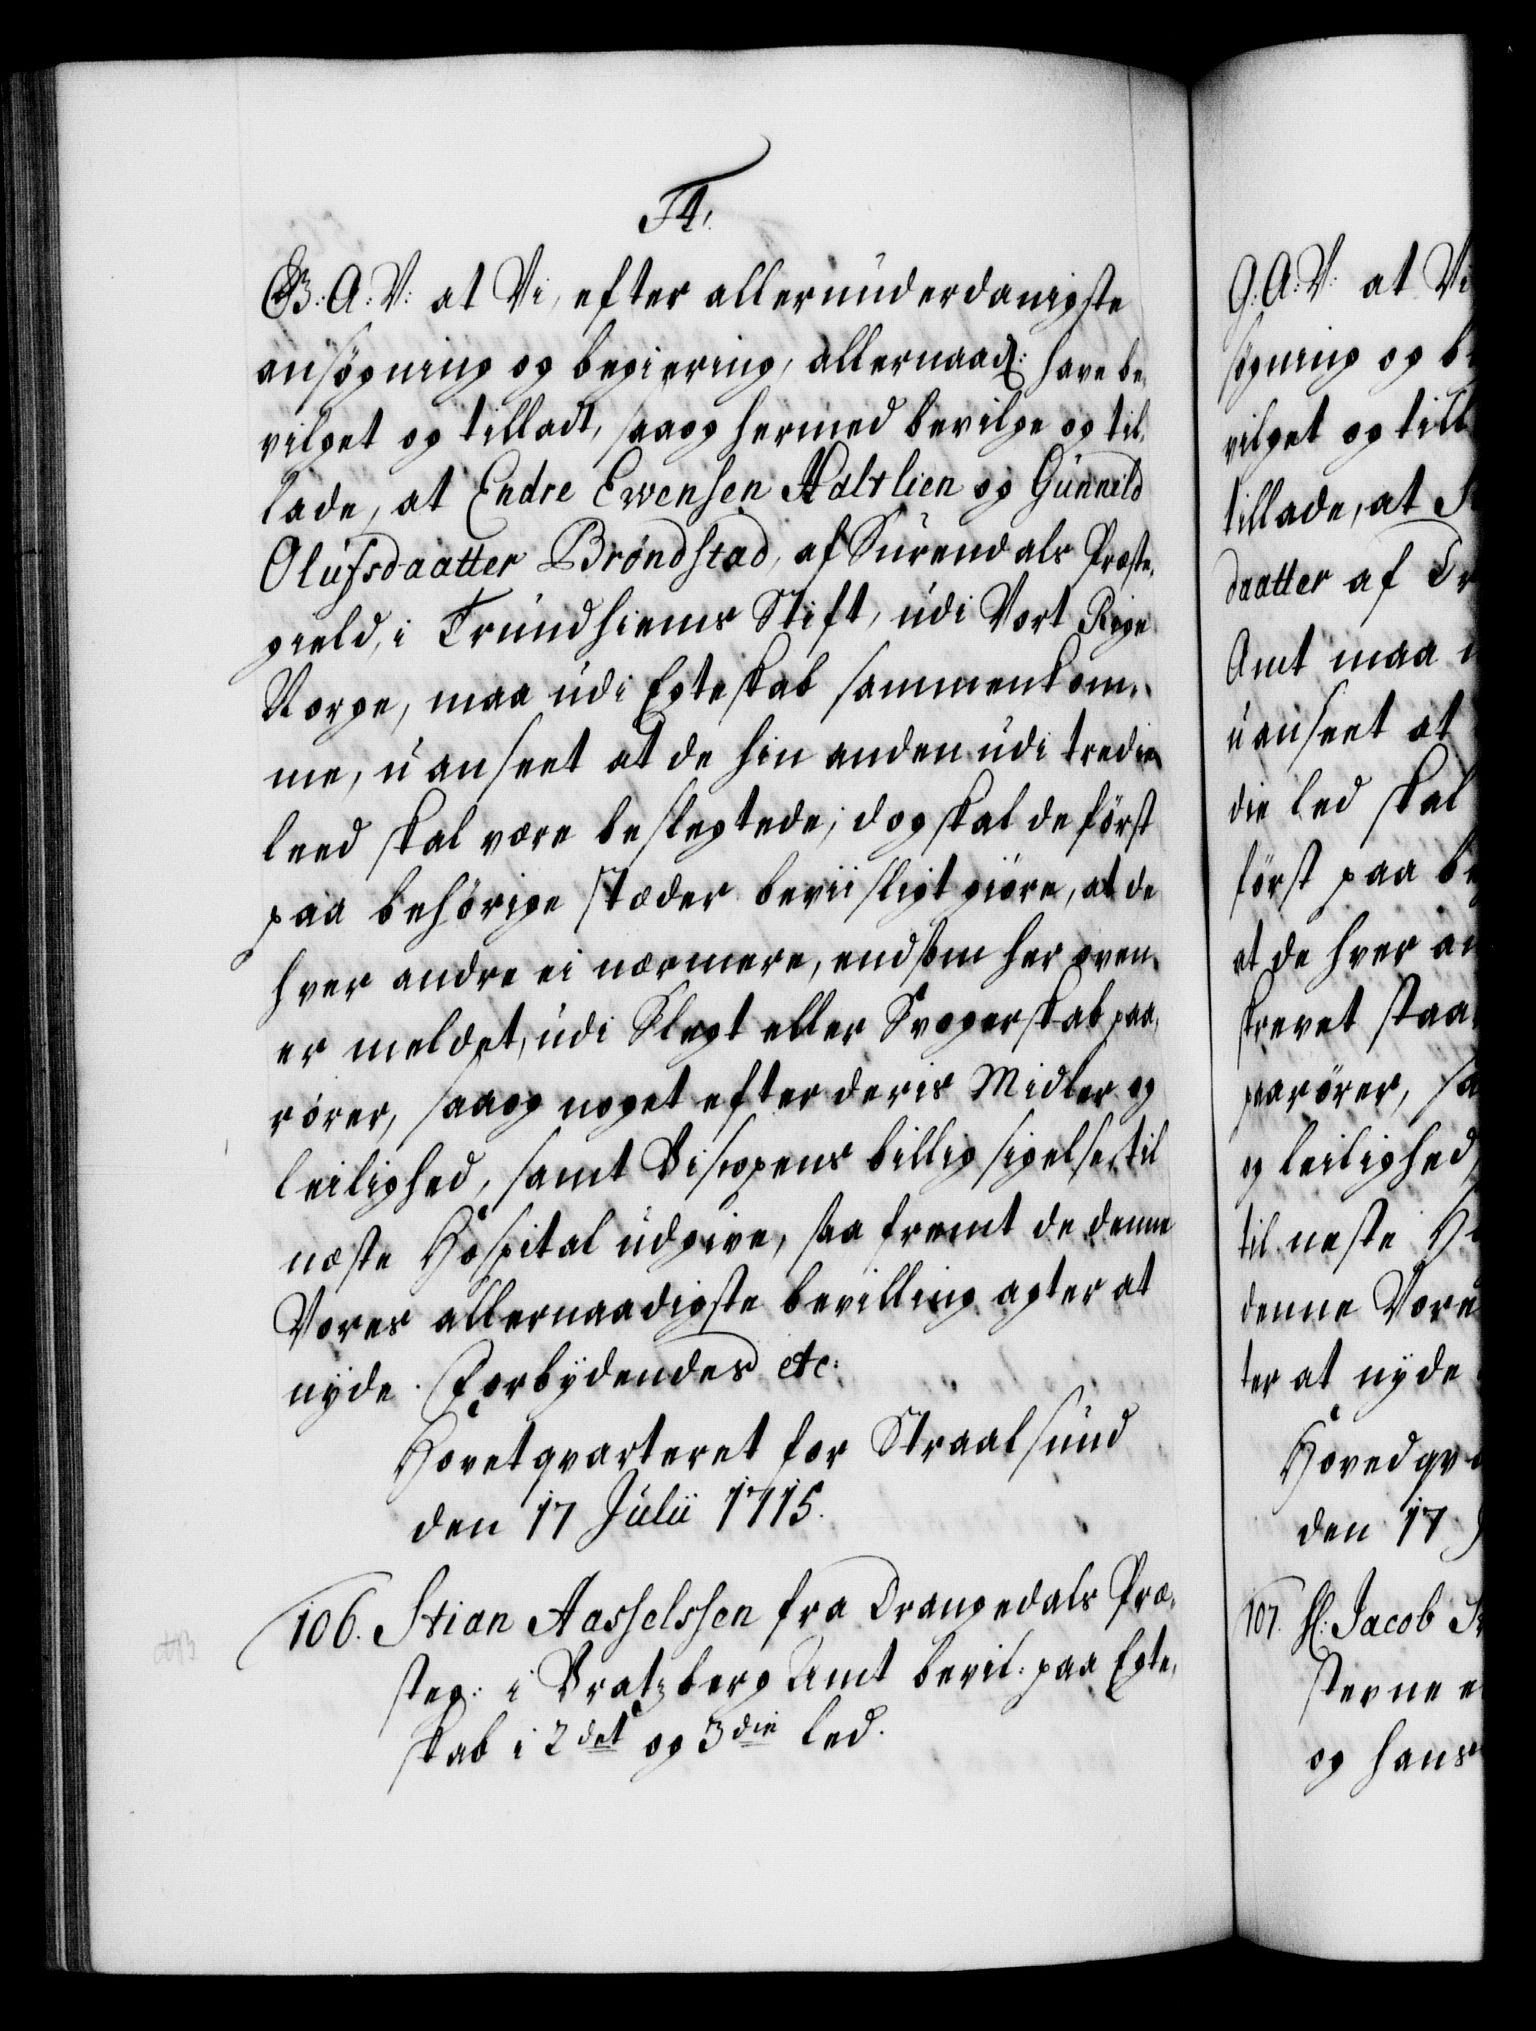 F4.
G: A: V: at Vi, efter allerunderdanigste
ansøgning og begiering, allernaad: have be-
vilget og tilladt, saaog hermed bevilge og til-
lade, at Endre Ewensen Haltlien og Gunnild
Olufsdaatter Brøndstad, af Surendals Præste-
gield, i Trundhiems Stift, udi Vort Rige
Norge, maa udi Egteskab sammenkom-
me, uanseet at de hin anden udi tredie
leed skal være beslegtede; dog skal de først
paa behørige stæder beviisligt giøre, at de
hver andre ei nærmere, end som her oven-
er meldet, udi Slegt eller Svogerskab paa-
rører, saaog noget efter deris Midler og
leilighed, samt Biscopens billig sigelse, til
næste Hospital udgive, saa fremt de denne
Vores allernaadigste bevilling agter at
nyde. Forbydendes etc:
Hovetqvarteret for Straalsund
den 17 Julii 1715.
106. Stian Aasselssen fra Drangedals Præ-
steg: i Bratzberg Amt bevil: paa Egte-
skab i 2det og 3die led.
G: A: V: at Vi
søgning og be
vilget og till
tillade, at
daatter af Tr
Amt maa
uanseet at
die led skal
først paa be
at de hver an
skrevet staa
paarører, sa
og leilighed
til neste Ho
denne Vore
ter at nyde
Hovedqva
den 17 J
107. H: Jacob
sterne e
og hans